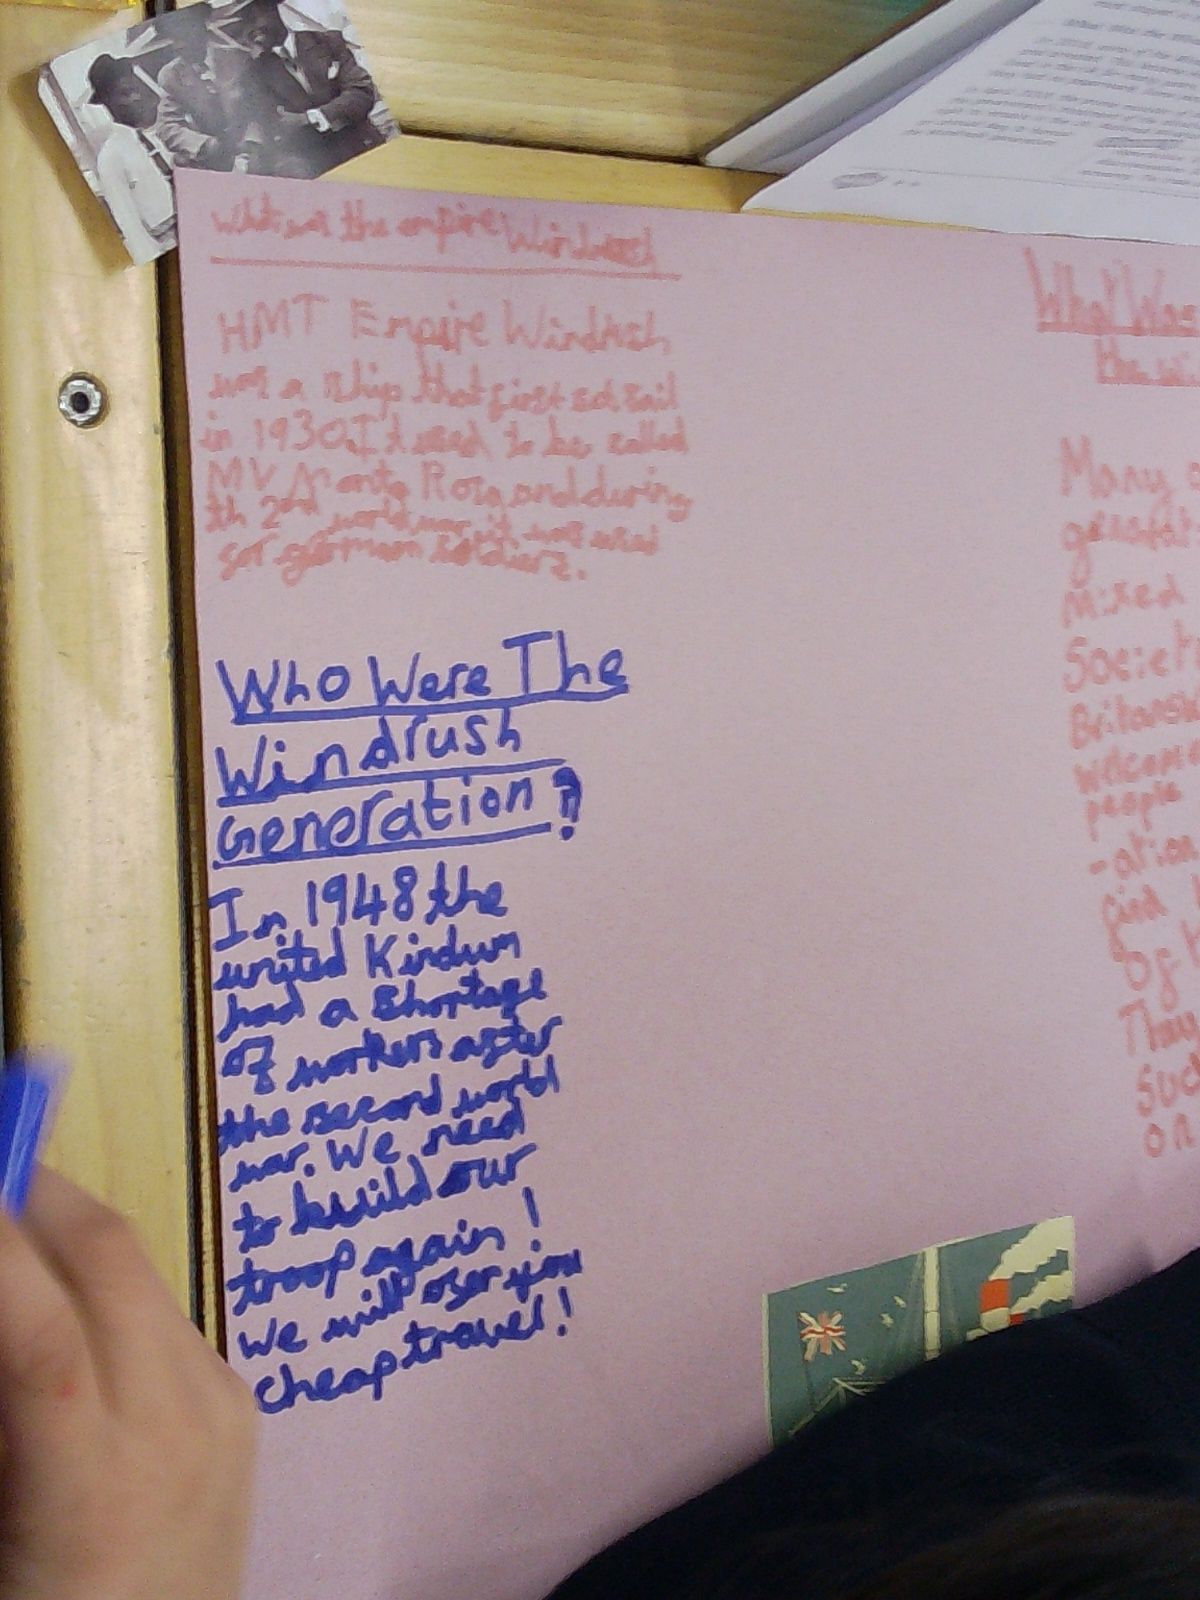 What was the empire Windrush
HMT Empire Windrush
was a ship that first set sail
in 1930. It used to be called
MV Monte Rosa and during
th 2nd world war it was used
for german soldiers.
Who Were The
Windrush
Generation?
In 1948 the
united Kindum
had a shortage
of workers after
the second world
war. We need
to build our
troop again!
We will offer you
cheap travel!
What Was
the Wi
Many o
generat
mixed
Societ
welcome
people
-ation
Of
They
Suc
on